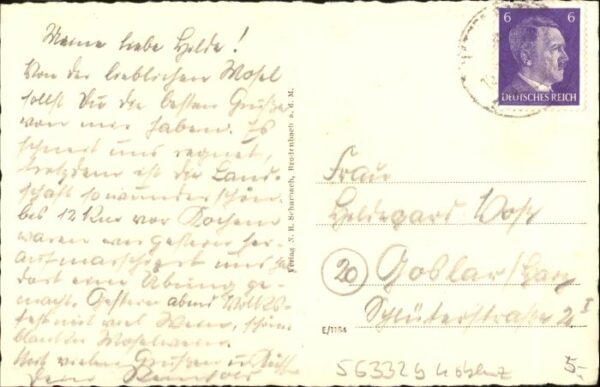 Meine liebe Hilde!
Von der lieblichen Mosel
sollst Du die besten Grüße
von mir haben. Es
schneit und regnet,
trotzdem ist die Land-
schaft so wunderschön.
bis 12 Km vor Kochem
waren wir gestern her-
aufmarschiert und
dort eine Übung ge-
macht. Gestern abend
mit viel Wein,
Moselwein.
Mit vielen Grüßen u. Küssen
Dein
Verlag N. H. Scharnach, Brodenbach a. d. M.
6 6
DEUTSCHES REICH
Frau
Hildegard Voss
20 Goslar/Harz
Schlüterstraße 2 I
E/1184
563326 Koblenz
5.-